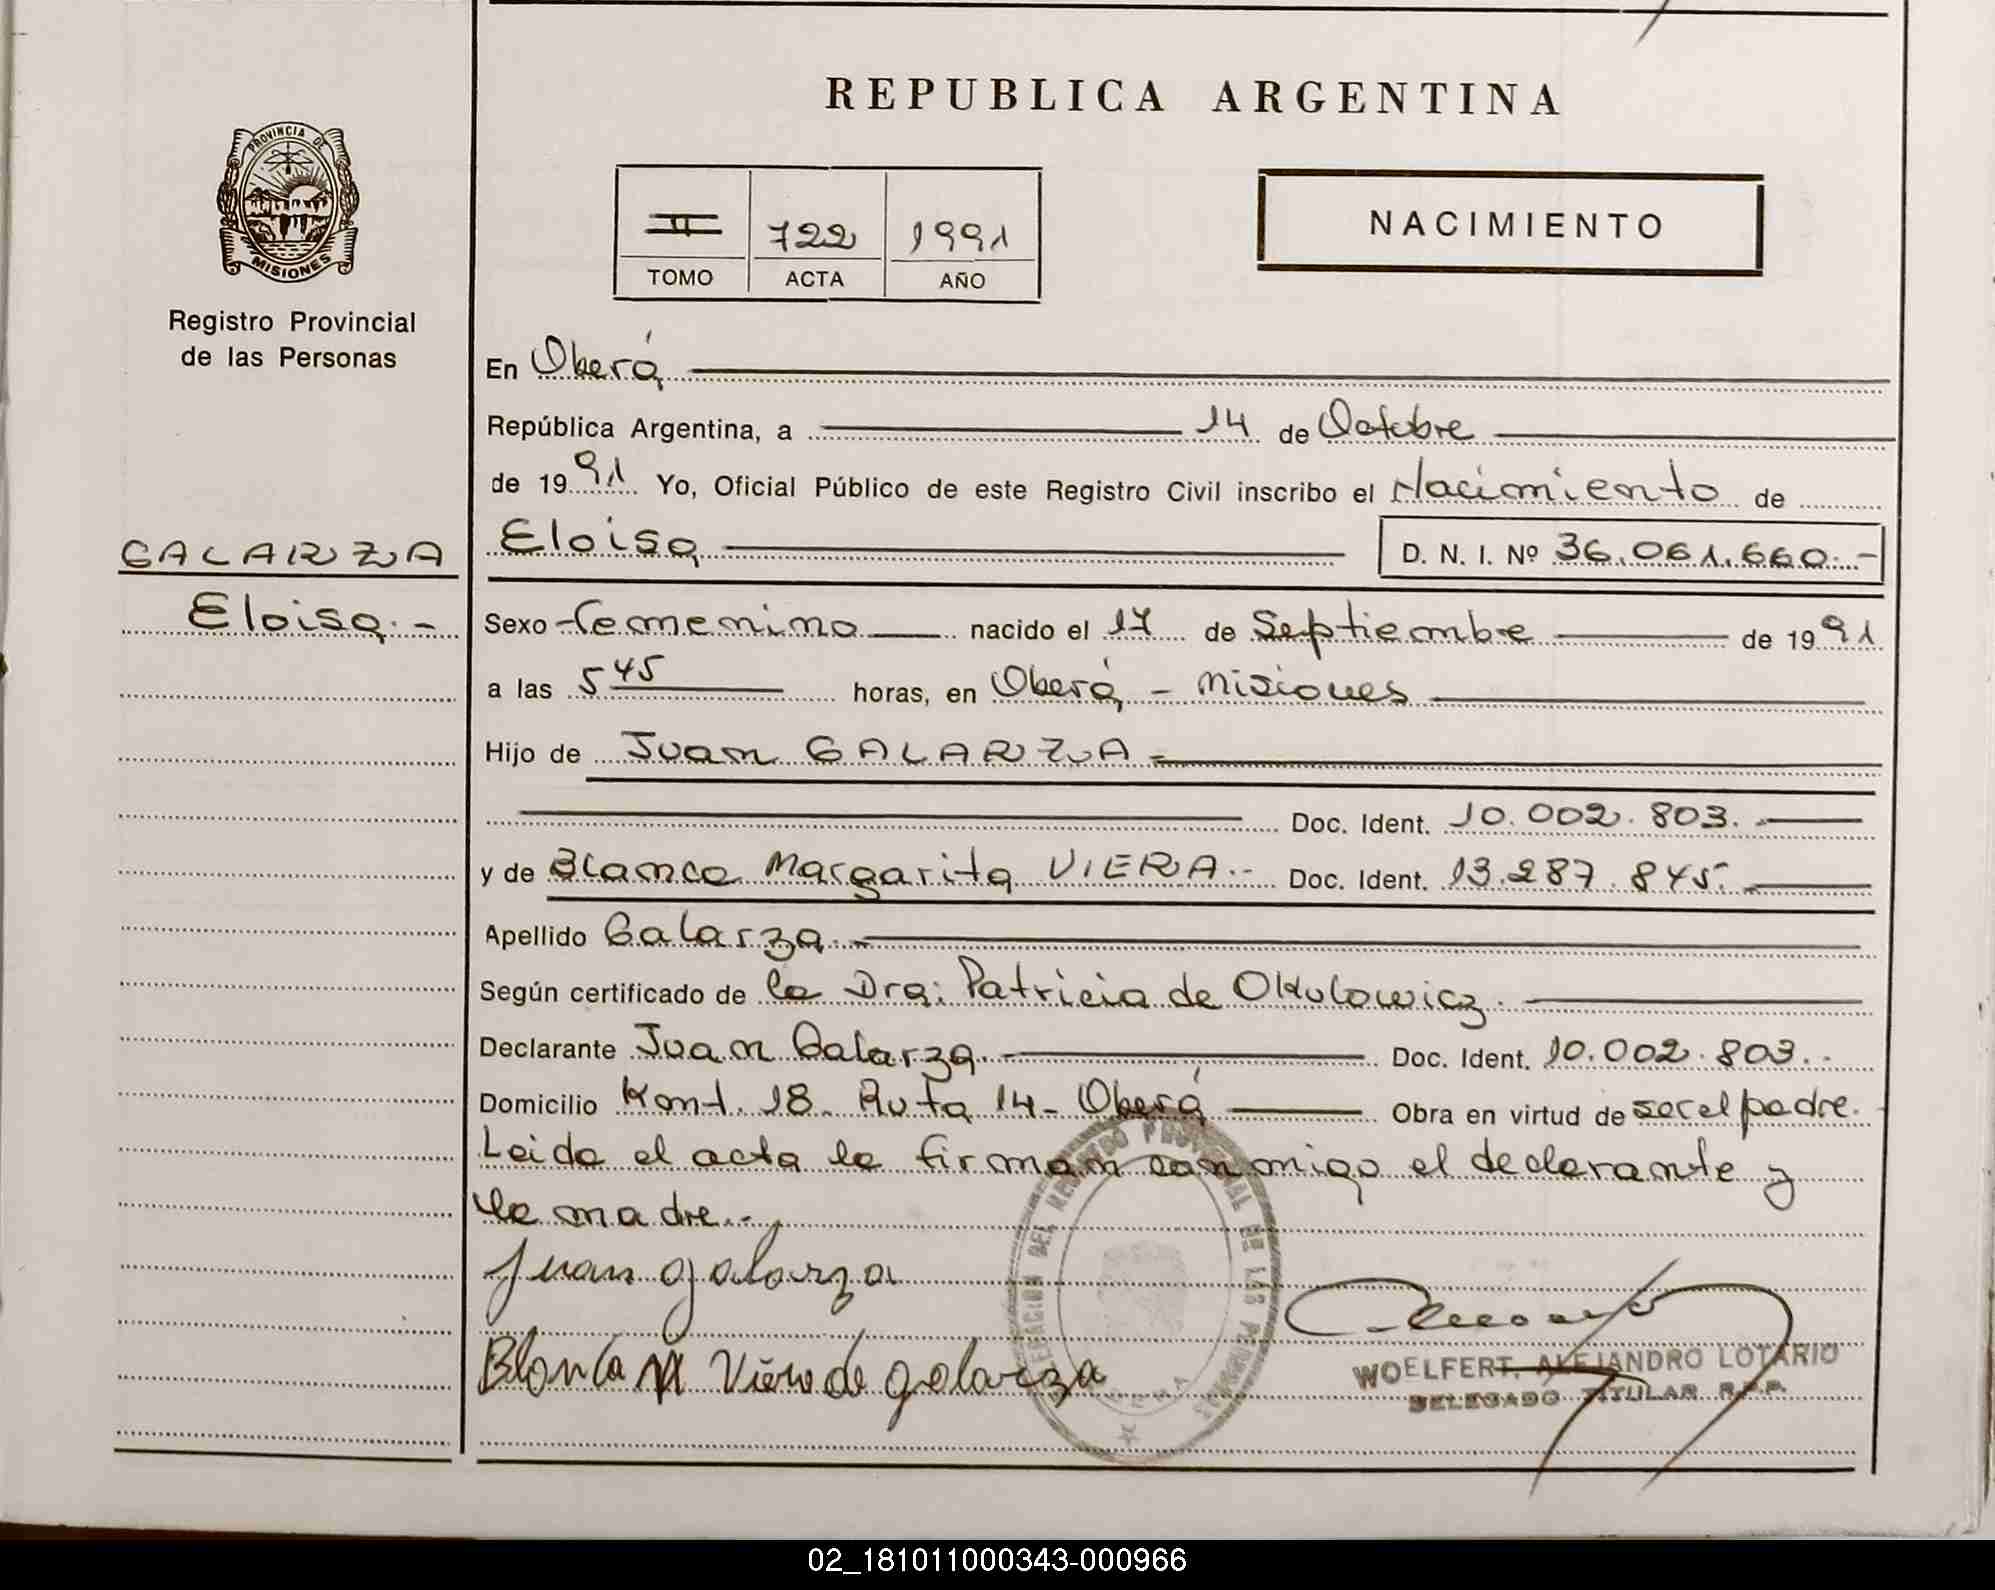 REPUBLICA ARGENTINA
PROVINCIA DE
MISIONES
Registro Provincial
de las Personas
II 722 1991
TOMO ACTA AÑO
NACIMIENTO
En Oberá
República Argentina, a 14 de Octubre
de 1991 Yo, Oficial Público de este Registro Civil inscribo el Nacimiento de
GALARZA
Eloisa.-
Eloisa D. N. I. Nº 36.061.660.-
Sexo Femenino nacido el 17 de Septiembre de 1991
a las 5 45 horas, en Oberá - Misiones
Hijo de Juan GALARZA
Doc. Ident. 10.002.803.
y de Blanca Margarita VIERA.- Doc. Ident. 13.287.845.
Apellido Galarza.
Según certificado de la Dra: Patricia de Okulowicz.
Declarante Juan Galarza. Doc. Ident. 10.002.803.
Domicilio Kmt. 18. Ruta 14- Oberá Obra en virtud de ser el padre.
Leida el acta la firman conmigo el declarante y
la madre.-
Juan galarza
Blanca M Viera de galarza
DELEGACION DEL REGISTRO PROVINCIAL DE LAS PERSONAS
WOELFERT, ALEJANDRO LOTARIO
DELEGADO TITULAR R.P.P.
02_181011000343-000966